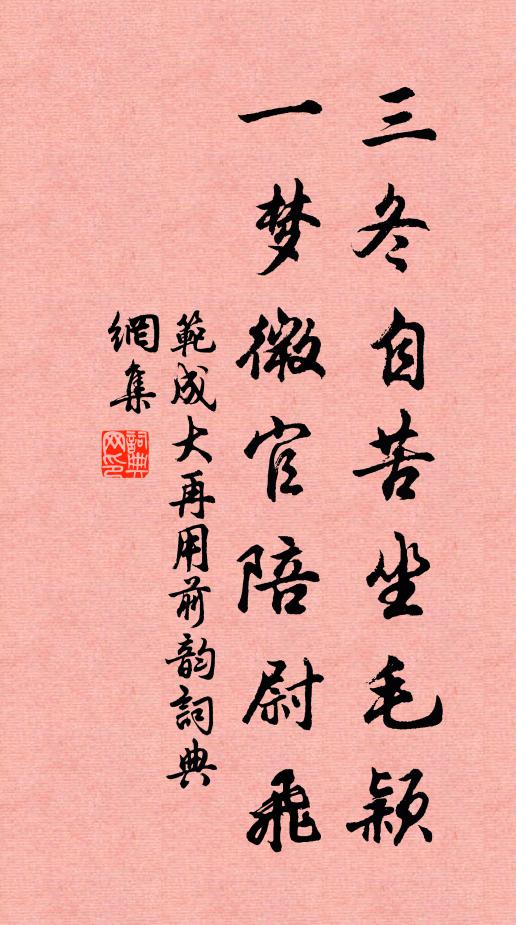 三冬自苦坐毛颖
一梦微官陪尉飛
範成大再用前韵詞典
網集
詞典网印